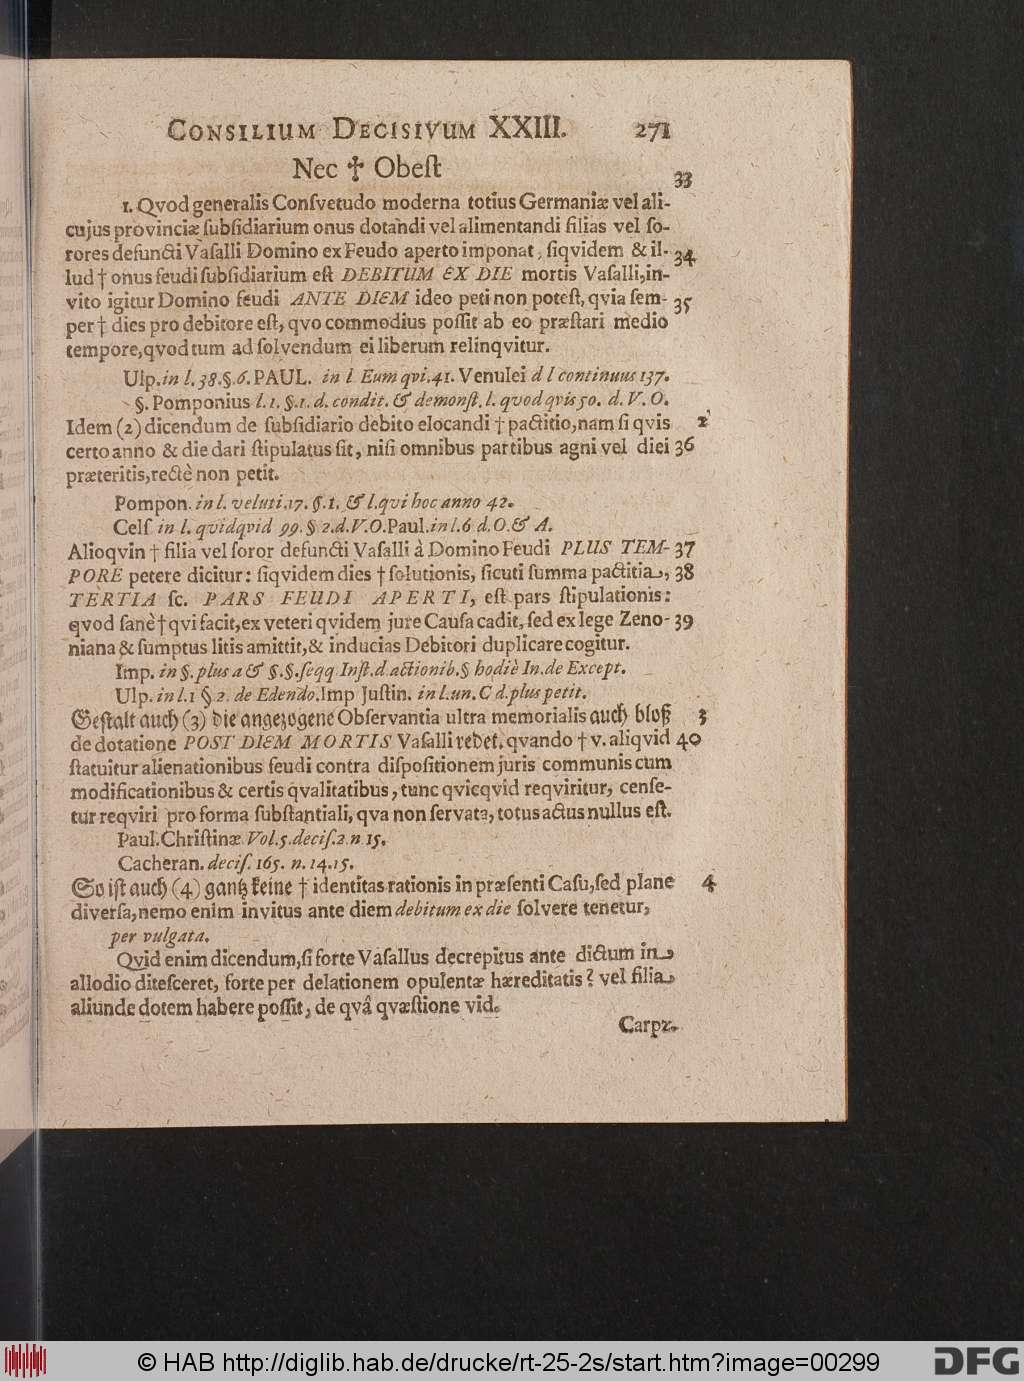 CONSILIUM DECISIVUM XXIII. 271
Nec ✝ Obeſt 33
1. Qvod generalis Conſvetudo moderna totius Germaniæ vel ali-
cujus provinciæ ſubſidiarium onus dotandi vel alimentandi filias vel ſo-
rores defuncti Vaſalli Domino ex Feudo aperto imponat, ſiqvidem & il- 34
lud † onus feudi ſubſidiarium eſt DEBITUM EX DIE mortis Vaſalli, in-
vito igitur Domino feudi ANTE DIEM ideo peti non poteſt, qvia ſem- 35
per † dies pro debitore eſt, qvo commodius poſſit ab eo præſtari medio
tempore, qvod tum ad ſolvendum ei liberum relinqvitur.
Ulp. in l. 38. §. 6. PAUL. in l Eum qvi. 41. Venulei d l continuus 137.
§. Pomponius l. 1. §. 1. d. condit. & demonſt. l. quod qvis 50. d. V. O.
Idem (2) dicendum de ſubſidiario debito elocandi † pactitio, nam ſi qvis 2
certo anno & die dari ſtipulatus ſit, niſi omnibus partibus agni vel diei 36
præteritis, rectè non petit.
Pompon. in l. veluti. 17. §. 1. & l. qui hoc anno 42.
Celſ in l. qvidqvid 99. § 2. d. V. O. Paul. in l. 6 d. O. & A.
Alioqvin † filia vel ſoror defuncti Vaſalli à Domino Feudi PLUS TEM- 37
PORE petere dicitur: ſiqvidem dies † ſolutionis, ſicuti ſumma pactitia, 38
TERTIA ſc. PARS FEUDI APERTI, eſt pars ſtipulationis:
qvod ſanè † qvi facit, ex veteri qvidem jure Cauſa cadit, ſed ex lege Zeno- 39
niana & ſumptus litis amittit, & inducias Debitori duplicare cogitur.
Imp. in §. plus a & §. §. ſeqq Inſt. d. actionib. § hodiè In. de Except.
Ulp. in l. 1 § 2. de Edendo. Imp Juſtin. in l. un. C d. plus petit.
Geſtalt auch (3) die angezogene Obſervantia ultra memorialis auch bloß 3
de dotatione POST DIEM MORTIS Vaſalli redet, qvando † v. aliqvid 40
ſtatuitur alienationibus feudi contra diſpoſitionem juris communis cum
modificationibus & certis qvalitatibus, tunc qvicqvid reqviritur, cenſe-
tur reqviri pro forma ſubſtantiali, qva non ſervata, totus actus nullus eſt.
Paul. Chriſtinæ Vol. 5. deciſ. 2. n 15.
Cacheran. deciſ. 165. n. 14. 15.
So iſt auch (4) gantz keine † identitas rationis in præſenti Caſu, ſed plane 4
diverſa, nemo enim invitus ante diem debitum ex die ſolvere tenetur,
per vulgata.
Qvid enim dicendum, ſi forte Vaſallus decrepitus ante dictum in
allodio diteſceret, forte per delationem opulentæ hæreditatis? vel filia
aliunde dotem habere poſſit, de qvâ qvæſtione vid.
Carpz.
© HAB http://diglib.hab.de/drucke/rt-25-2s/start.htm?image=00299
DFG